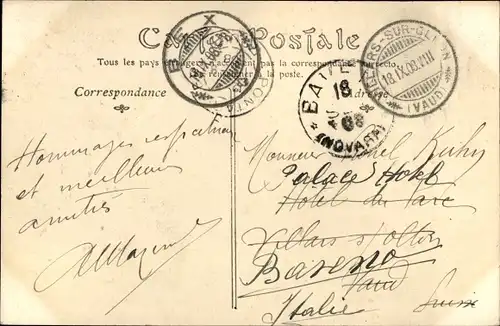 Carte Postale
Tous les pays étrangers n'acceptent pas la correspondance au recto
à la poste.
Correspondance
Adresse
BEX
VILLARS-SUR-OLLON
18.IX.08.VIII
(VAUD)
BAVENO
18
08
(NOVARA)
Hommages respectueux
et meilleures
amitiés
Monsieur Kuhn
Palace Hotel
Hotel du Parc
Villars s/ Ollon
Baveno
Vaud
Italie
Suisse